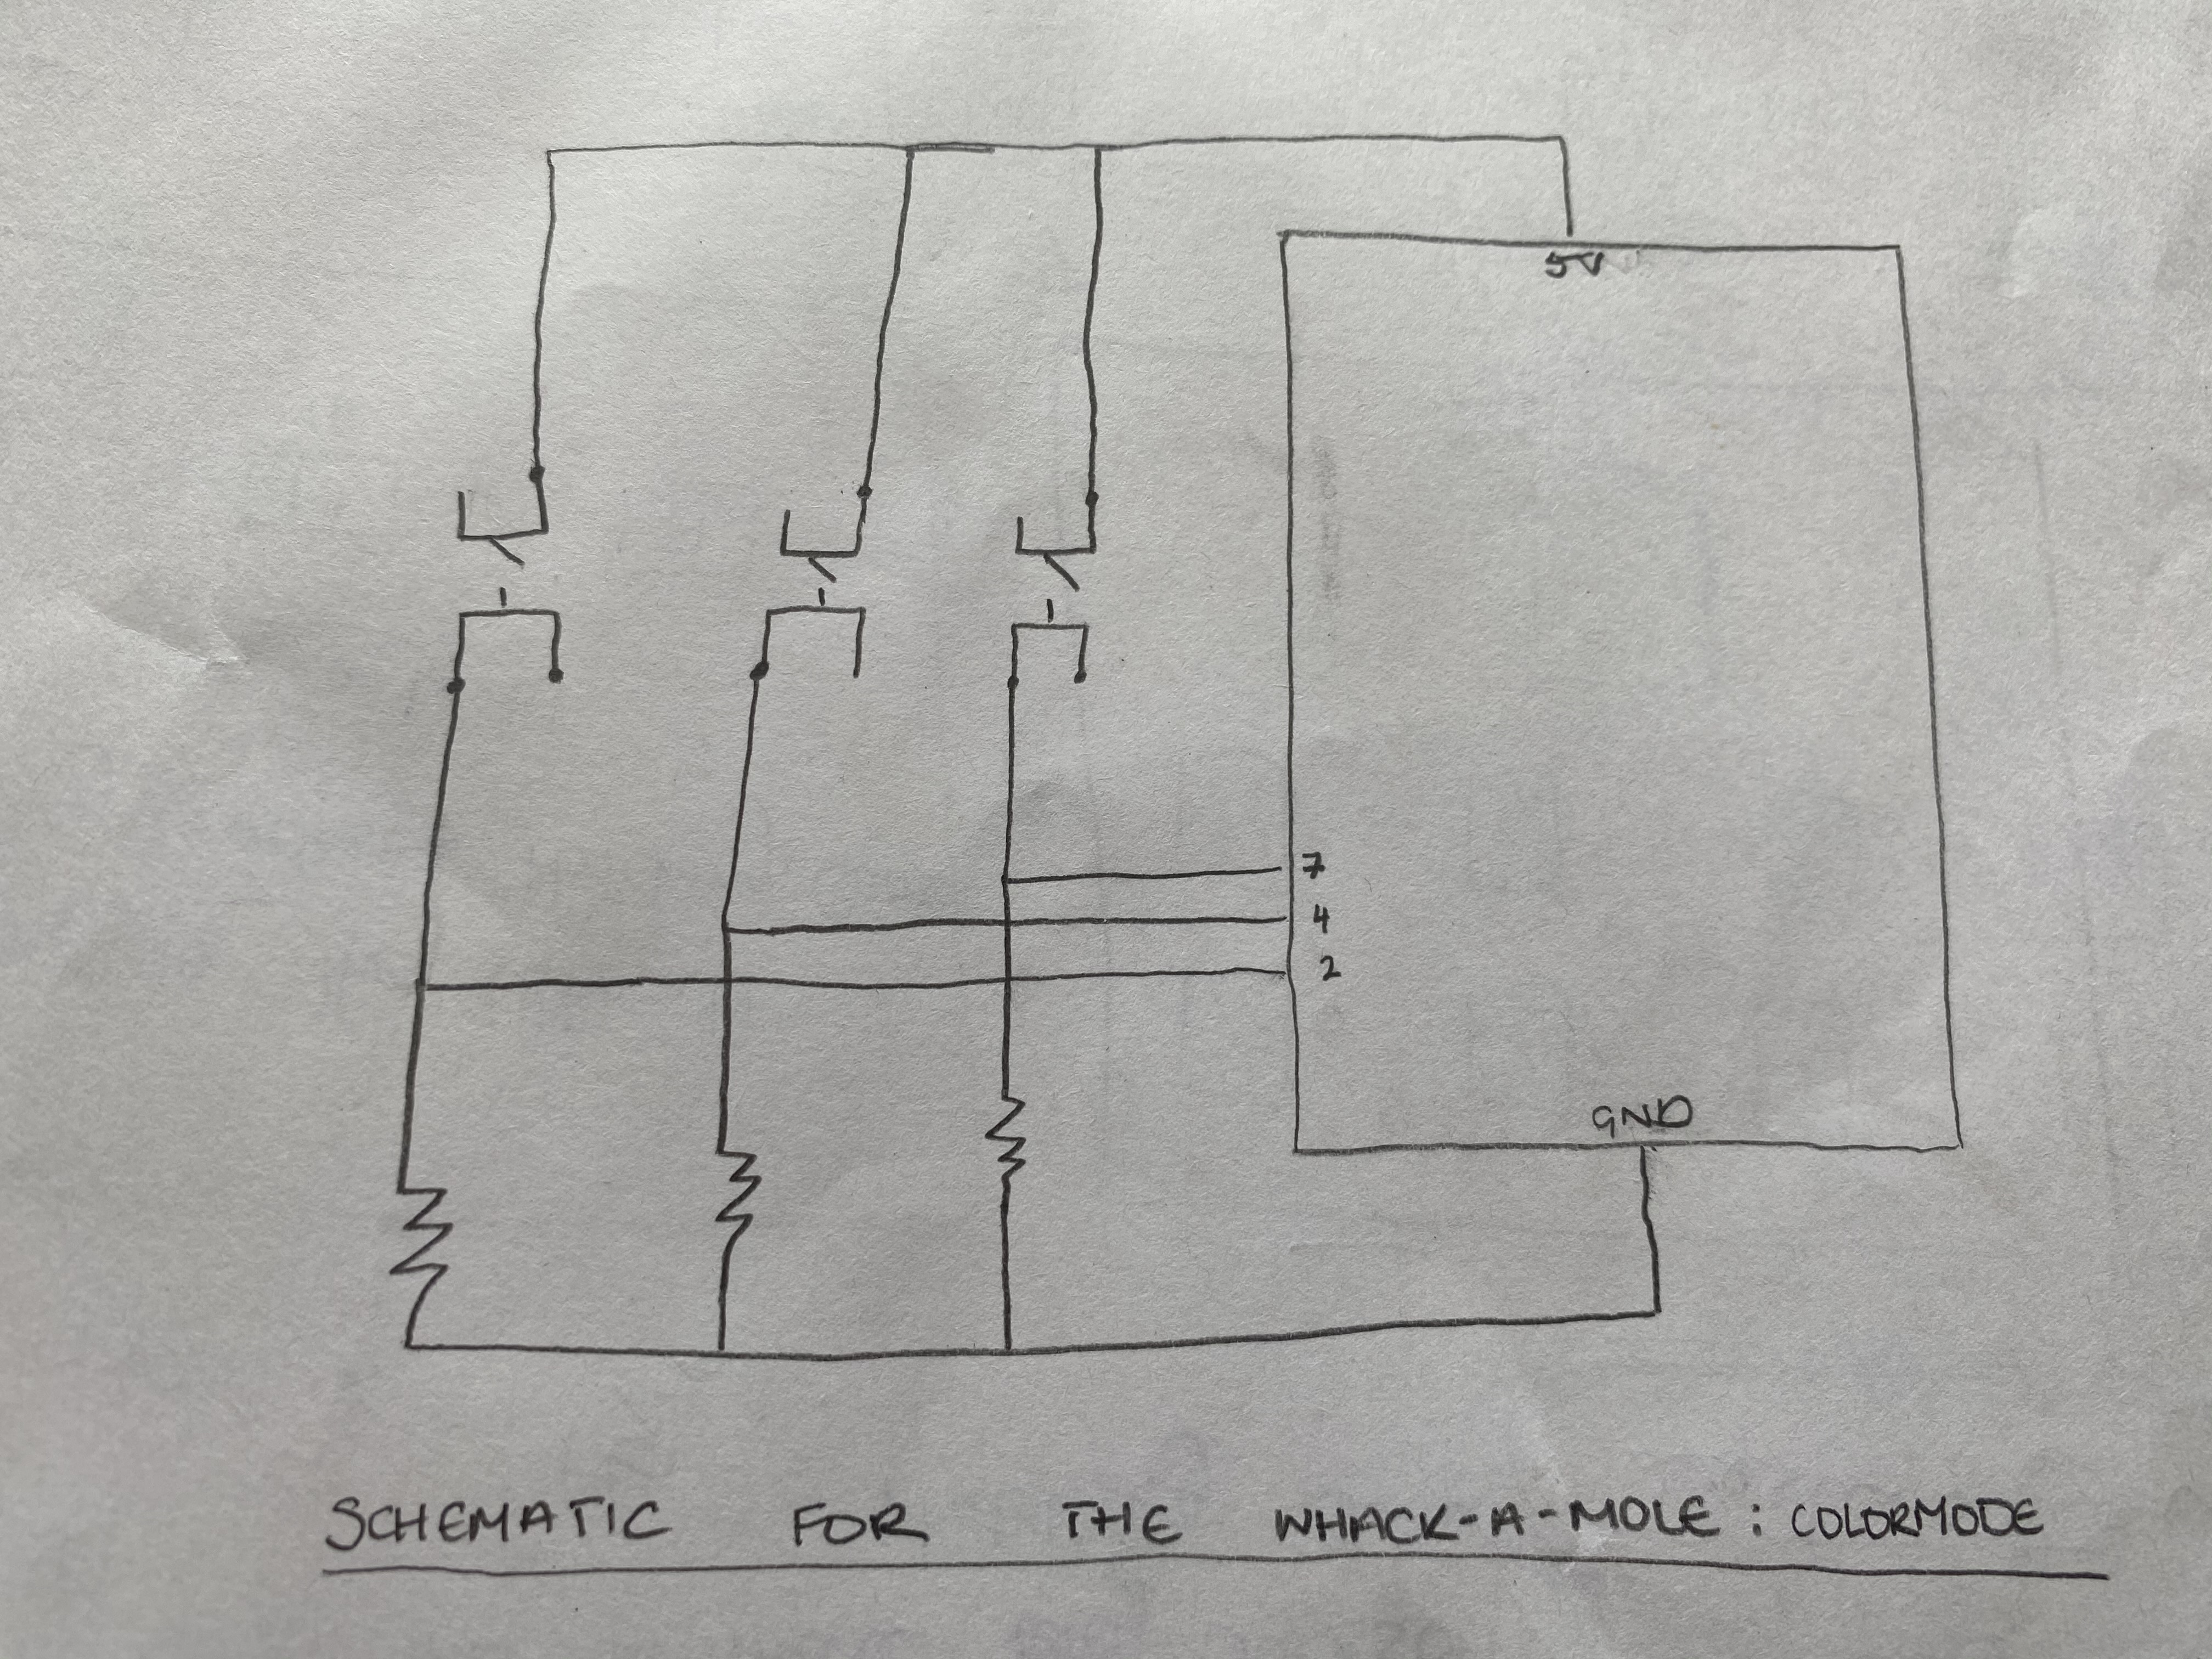 5V
7
4
2
GND
SCHEMATIC FOR THE WHACK-A-MOLE : COLORMODE